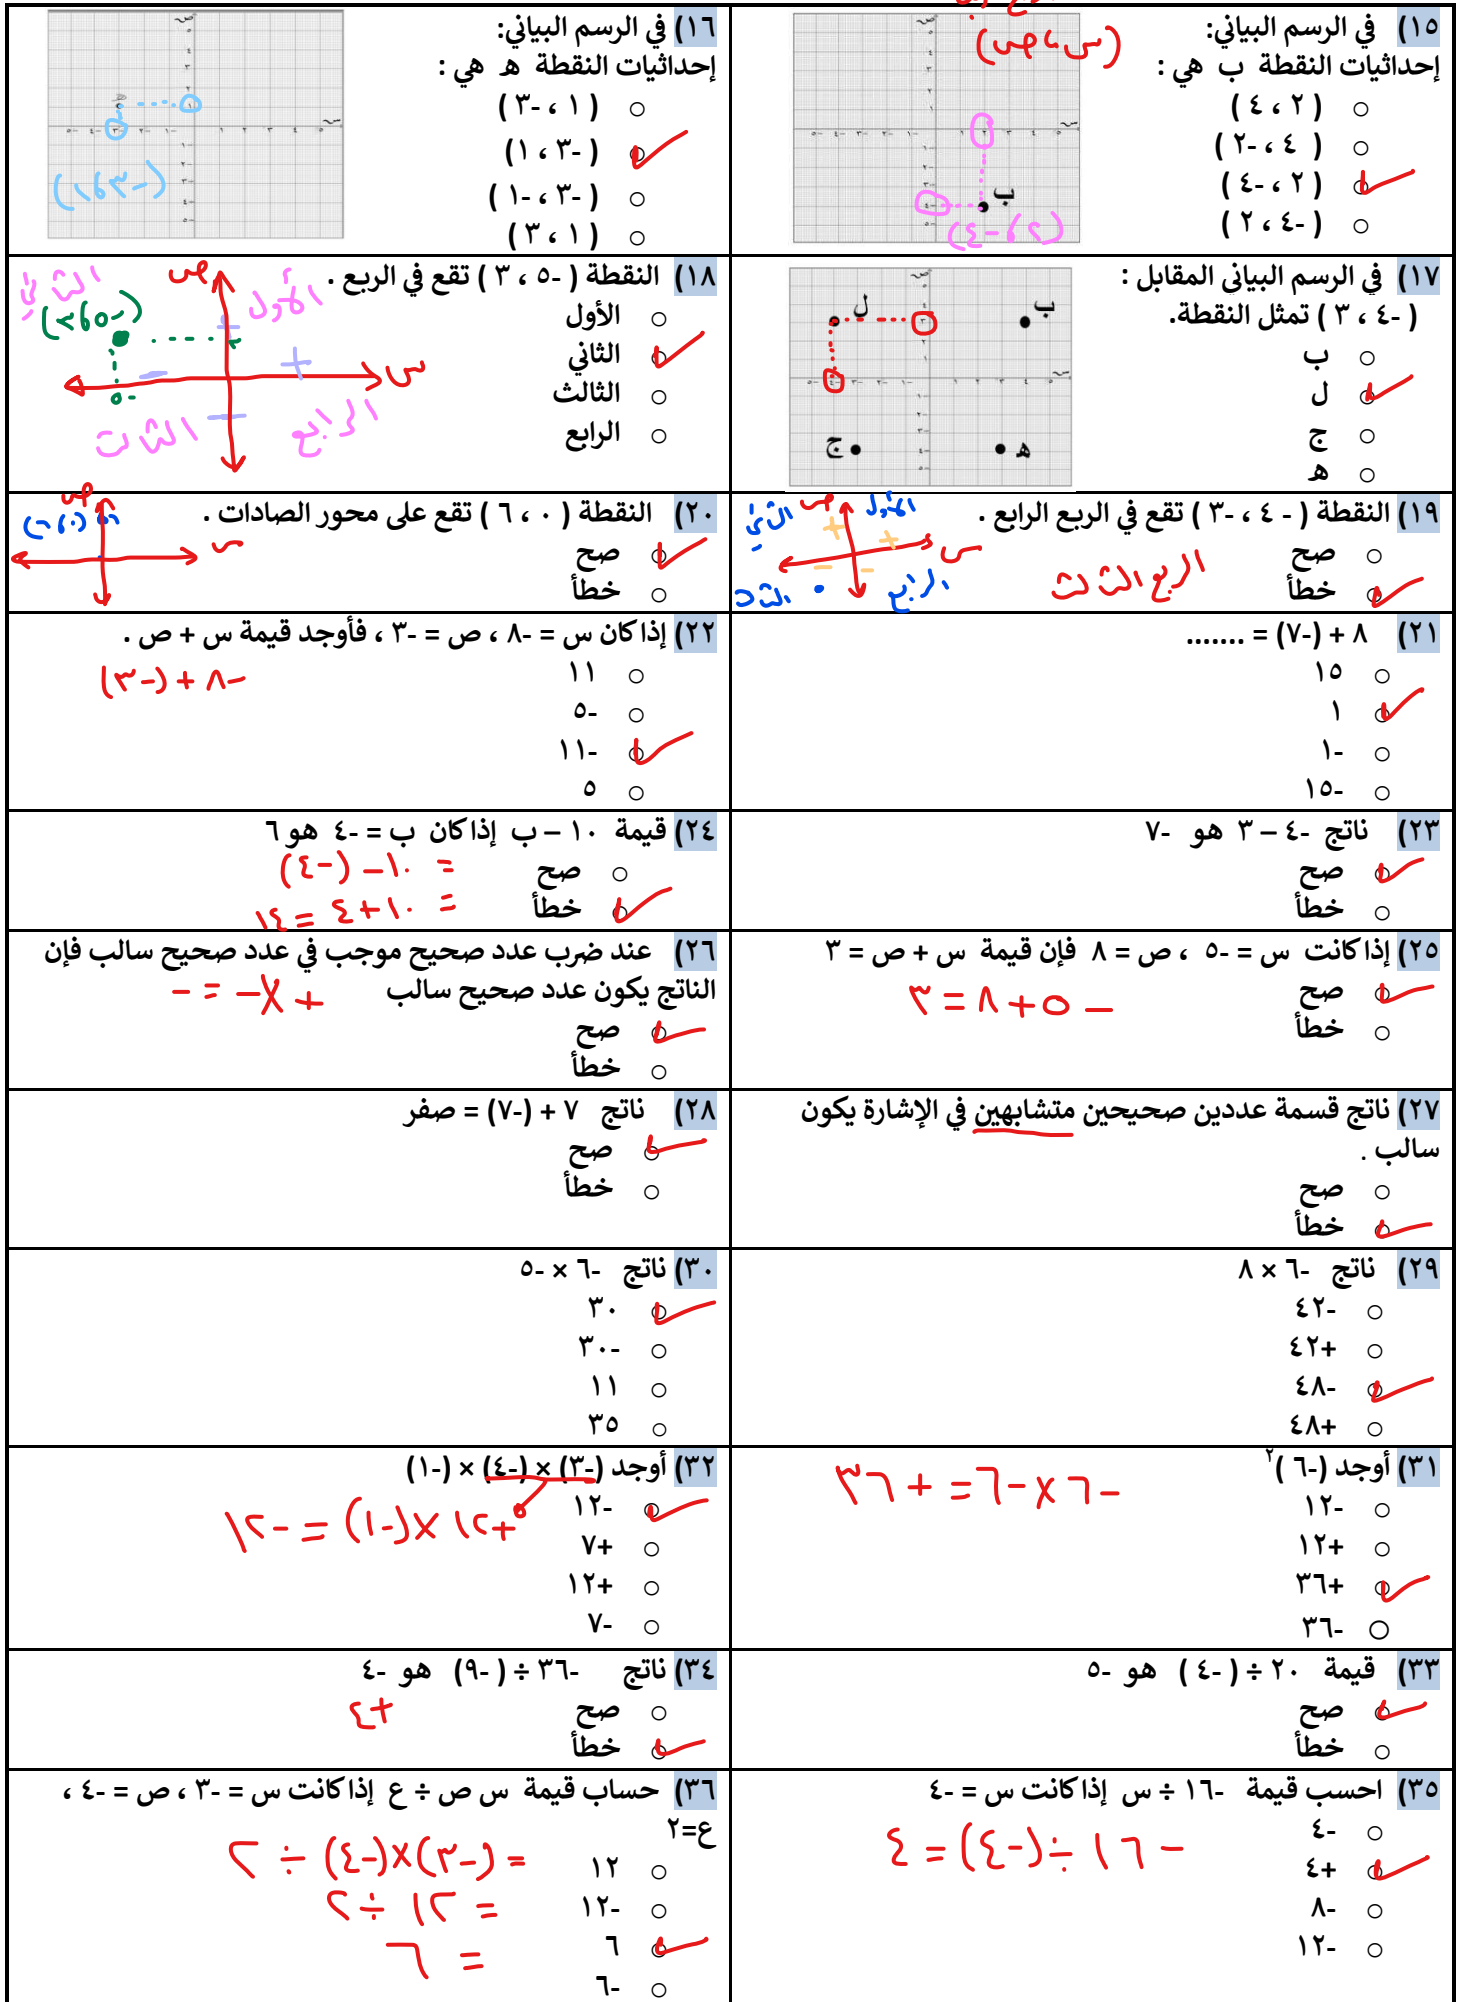 ١٥) في الرسم البياني:
إحداثيات النقطة ب هي :
(س ، ص)
( ٢ ، ٤ )
( ٤ ، -٢ )
( ٢ ، -٤ )
( -٤ ، ٢ )
ب
(٢ ، -٤)
١٦) في الرسم البياني:
إحداثيات النقطة ه هي :
( ١ ، -٣ )
( -٣ ، ١)
( -٣ ، -١ )
( ١ ، ٣ )
(-٣ ، ١)
١٧) في الرسم البياني المقابل :
( -٤ ، ٣ ) تمثل النقطة.
ب
ل
ج
ه
ل
ب
ج
ه
١٨) النقطة ( -٥ ، ٣ ) تقع في الربع .
الأول
الثاني
الثالث
الرابع
ص
س
الأول
الثاني
الثالث
الرابع
(-٥ ، ٣)
-٥
١٩) النقطة ( - ٤ ، -٣ ) تقع في الربع الرابع .
صح
خطأ
الربع الثالث
ص
س
الأول
الثاني
الرابع
٢٠) النقطة ( ٠ ، ٦ ) تقع على محور الصادات .
صح
خطأ
ص
س
(٠ ، ٦)
٢١) ٨ + (-٧) = .......
١٥
١
-١
-١٥
٢٢) إذا كان س = -٨ ، ص = -٣ ، فأوجد قيمة س + ص .
١١
-٥
-١١
٥
-٨ + (-٣)
٢٣) ناتج -٤ – ٣ هو -٧
صح
خطأ
٢٤) قيمة ١٠ – ب إذا كان ب = -٤ هو ٦
صح
خطأ
= ١٠ – (-٤)
= ١٠ + ٤ = ١٤
٢٥) إذا كانت س = -٥ ، ص = ٨ فإن قيمة س + ص = ٣
صح
خطأ
- ٥ + ٨ = ٣
٢٦) عند ضرب عدد صحيح موجب في عدد صحيح سالب فإن
الناتج يكون عدد صحيح سالب
صح
خطأ
+ × - = -
٢٧) ناتج قسمة عددين صحيحين متشابهين في الإشارة يكون
سالب .
صح
خطأ
٢٨) ناتج ٧ + (-٧) = صفر
صح
خطأ
٢٩) ناتج -٦ × ٨
-٤٢
+٤٢
-٤٨
+٤٨
٣٠) ناتج -٦ × -٥
٣٠
-٣٠
١١
٣٥
٣١) أوجد (-٦ )٢
-١٢
+١٢
+٣٦
-٣٦
-٦ × -٦ = + ٣٦
٣٢) أوجد (-٣) × (-٤) × (-١)
-١٢
+٧
+١٢
-٧
+١٢ × (-١) = -١٢
٣٣) قيمة ٢٠ ÷ ( -٤ ) هو -٥
صح
خطأ
٣٤) ناتج -٣٦ ÷ ( -٩) هو -٤
صح
خطأ
+٤
٣٥) احسب قيمة -١٦ ÷ س إذا كانت س = -٤
-٤
+٤
-٨
-١٢
- ١٦ ÷ (-٤) = ٤
٣٦) حساب قيمة س ص ÷ ع إذا كانت س = -٣ ، ص = -٤ ،
ع=٢
١٢
-١٢
٦
-٦
= (-٣) × (-٤) ÷ ٢
= ١٢ ÷ ٢
= ٦